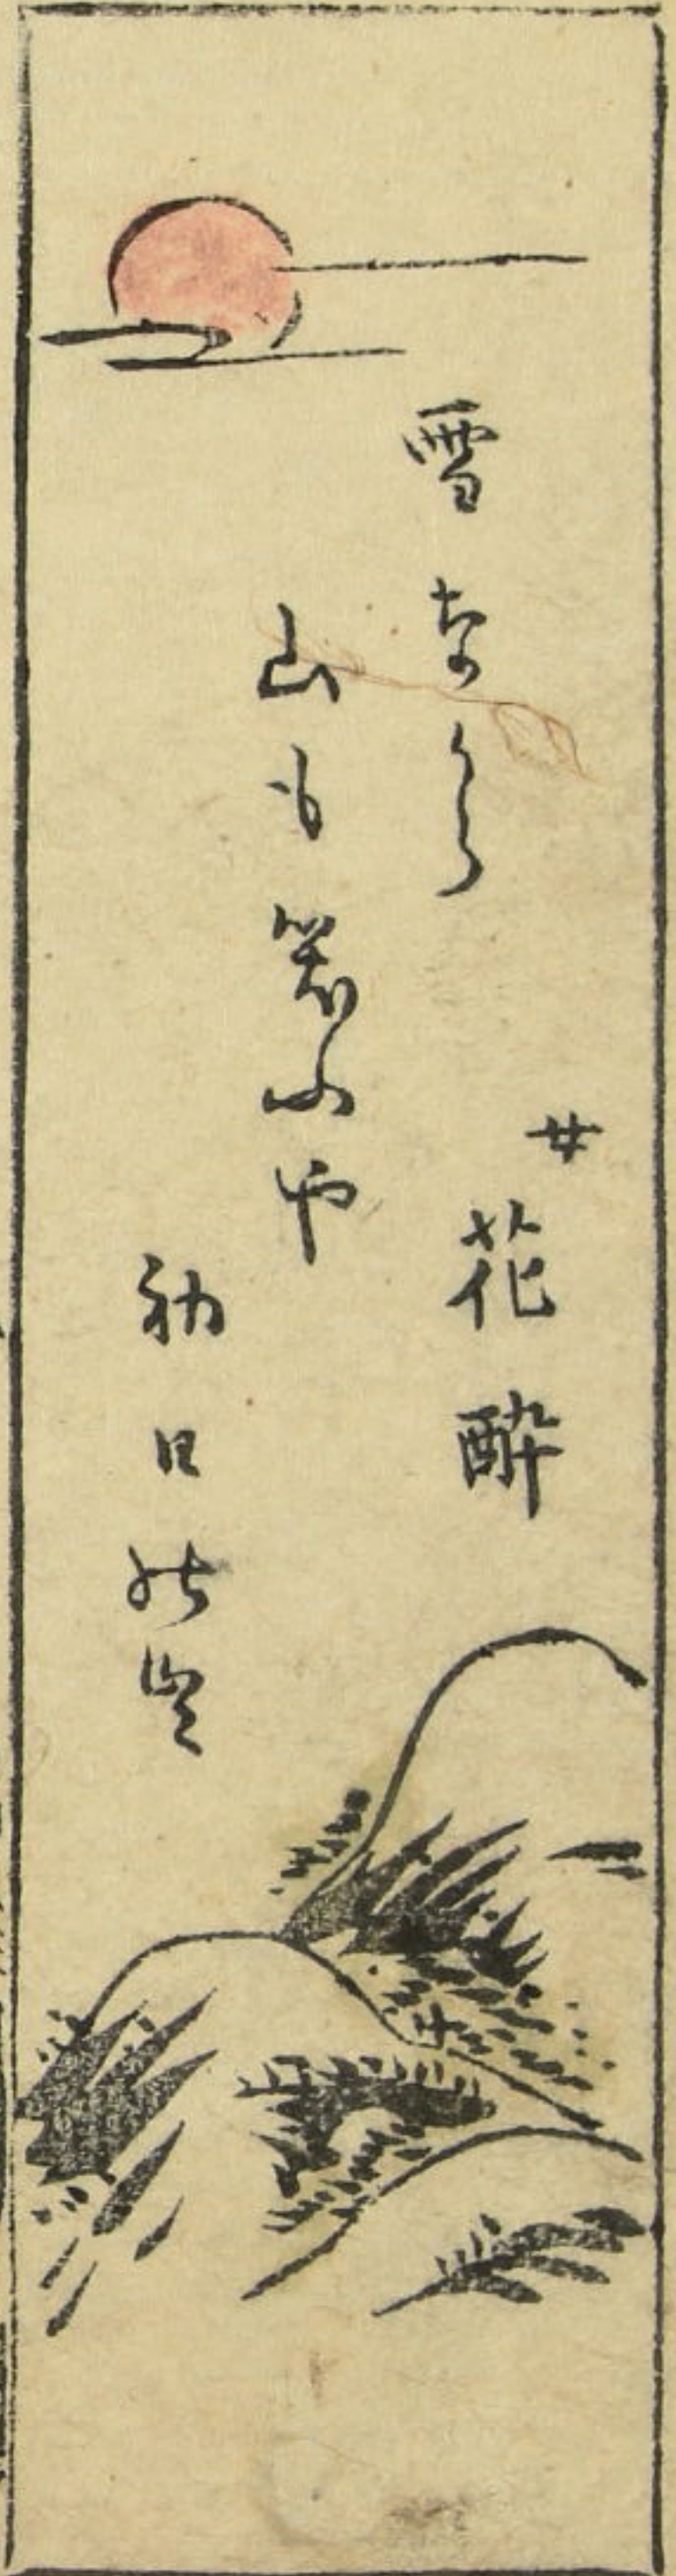 雪なから
山も笑ふや
初日の空
廿
花酔